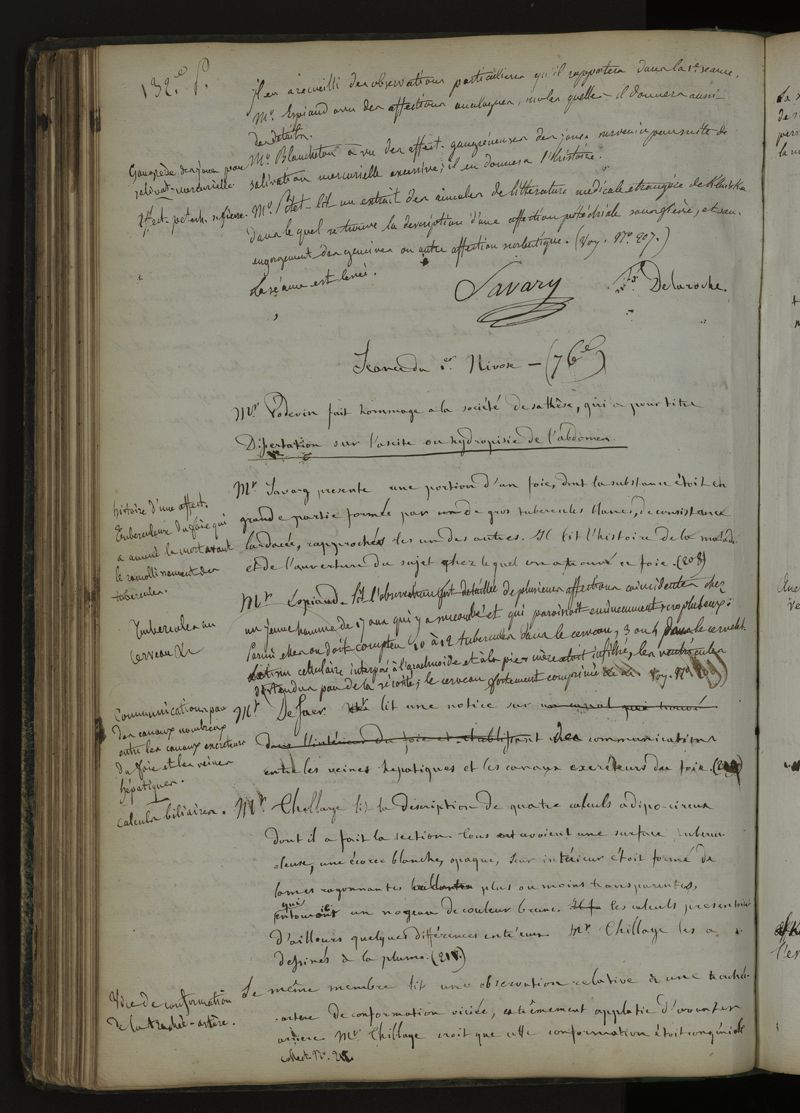 132.e f.
il en a recueilli des observations particulières qu'il rapportera dans la 1.re séance.
Mr. Espiaud a vu des affections analogues, sur les quelles il donnera aussi
des détails.
Gangrène des joues pour
salivat. mercurielle
Mr. Blancheton a vu des affect. gangréneuses des joues survenir par suite de
salivation mercurielle excessive; il en donnera l'histoire.
Mr. Petet lit un extrait des annales de littérature médicale étrangère de
dans le quel se trouve la description d'une affection pétéchiale sans fièvre, et avec
engorgement des gencives ou autre affection scorbutique. (Voy. N.o 207.)
La séance est levée.
Savary Delaroche.
Séance du 1.er Nivose - (76e)
Mr. Poderin fait hommage a la société de sa thèse, qui a pour titre
Dissertation sur l'ascite ou hydropisie de l'abdomen.
histoire d'une affect.
tuberculeuse du foie qui
a amené la mort avant
le ramollissement des
tubercules.
Mr Savary presente une portion d'un foie, dont la substance étoit en
grande partie formée par de gros tubercules blancs, de consistance
lardacée, rapprochés les uns des autres. Il lit l'histoire de la malade
et de l'ouverture du sujet chez lequel on a trouvé ce foie. (208)
Tubercules au
cerveau &c
Mr Espiaud lit l'observation fort détaillée de plusieurs affections coincidentes chez
un jeune homme de 17 ans qui y a succombé et qui paroissoit eminemment scrophuleux:
Parmi elles on doit compter 10 à 12 tubercules dans le cerveau, 3 ou 4 dans le cervelet
le tissu cellulaire interposé à l'arachnoide et à la pie mère étoit infiltré, les ventricules
distendus par de la sérosité; le cerveau fortement comprimé Voy. N.o
Communications par
des canaux nombreux
entre les canaux excréteurs
du foie et les veines
hépatiques.
Mr Defaer lit une notice sur un canal qui trouvé
dans l'intérieur du foie et établissant des communications
entre les veines hepatiques et les canaux excréteurs du foie.
calculs biliaires.
Mr Chillaye lit la description de quatre calculs adipo-cireux
dont il a fait la section. Tous avoient une surface tubercu
-leuse, une écorce blanche, opaque, leur intérieur étoit formé de
lames rayonnantes plus ou moins transparentes,
qui entouroient un noyeau de couleur brune. les calculs presentoient
d'ailleurs quelques différences entr'eux. Mr. Chillaye les a
dessinés à la plume. (211.)
Vice de conformation
de la trachée-artère.
Le même membre lit une observation relative à une trachée
-artère de conformation viciée, extrêmement applatie d'avant en
arrière Mr Chillaye croit que cette conformation étoit congéniale
collect. N.o